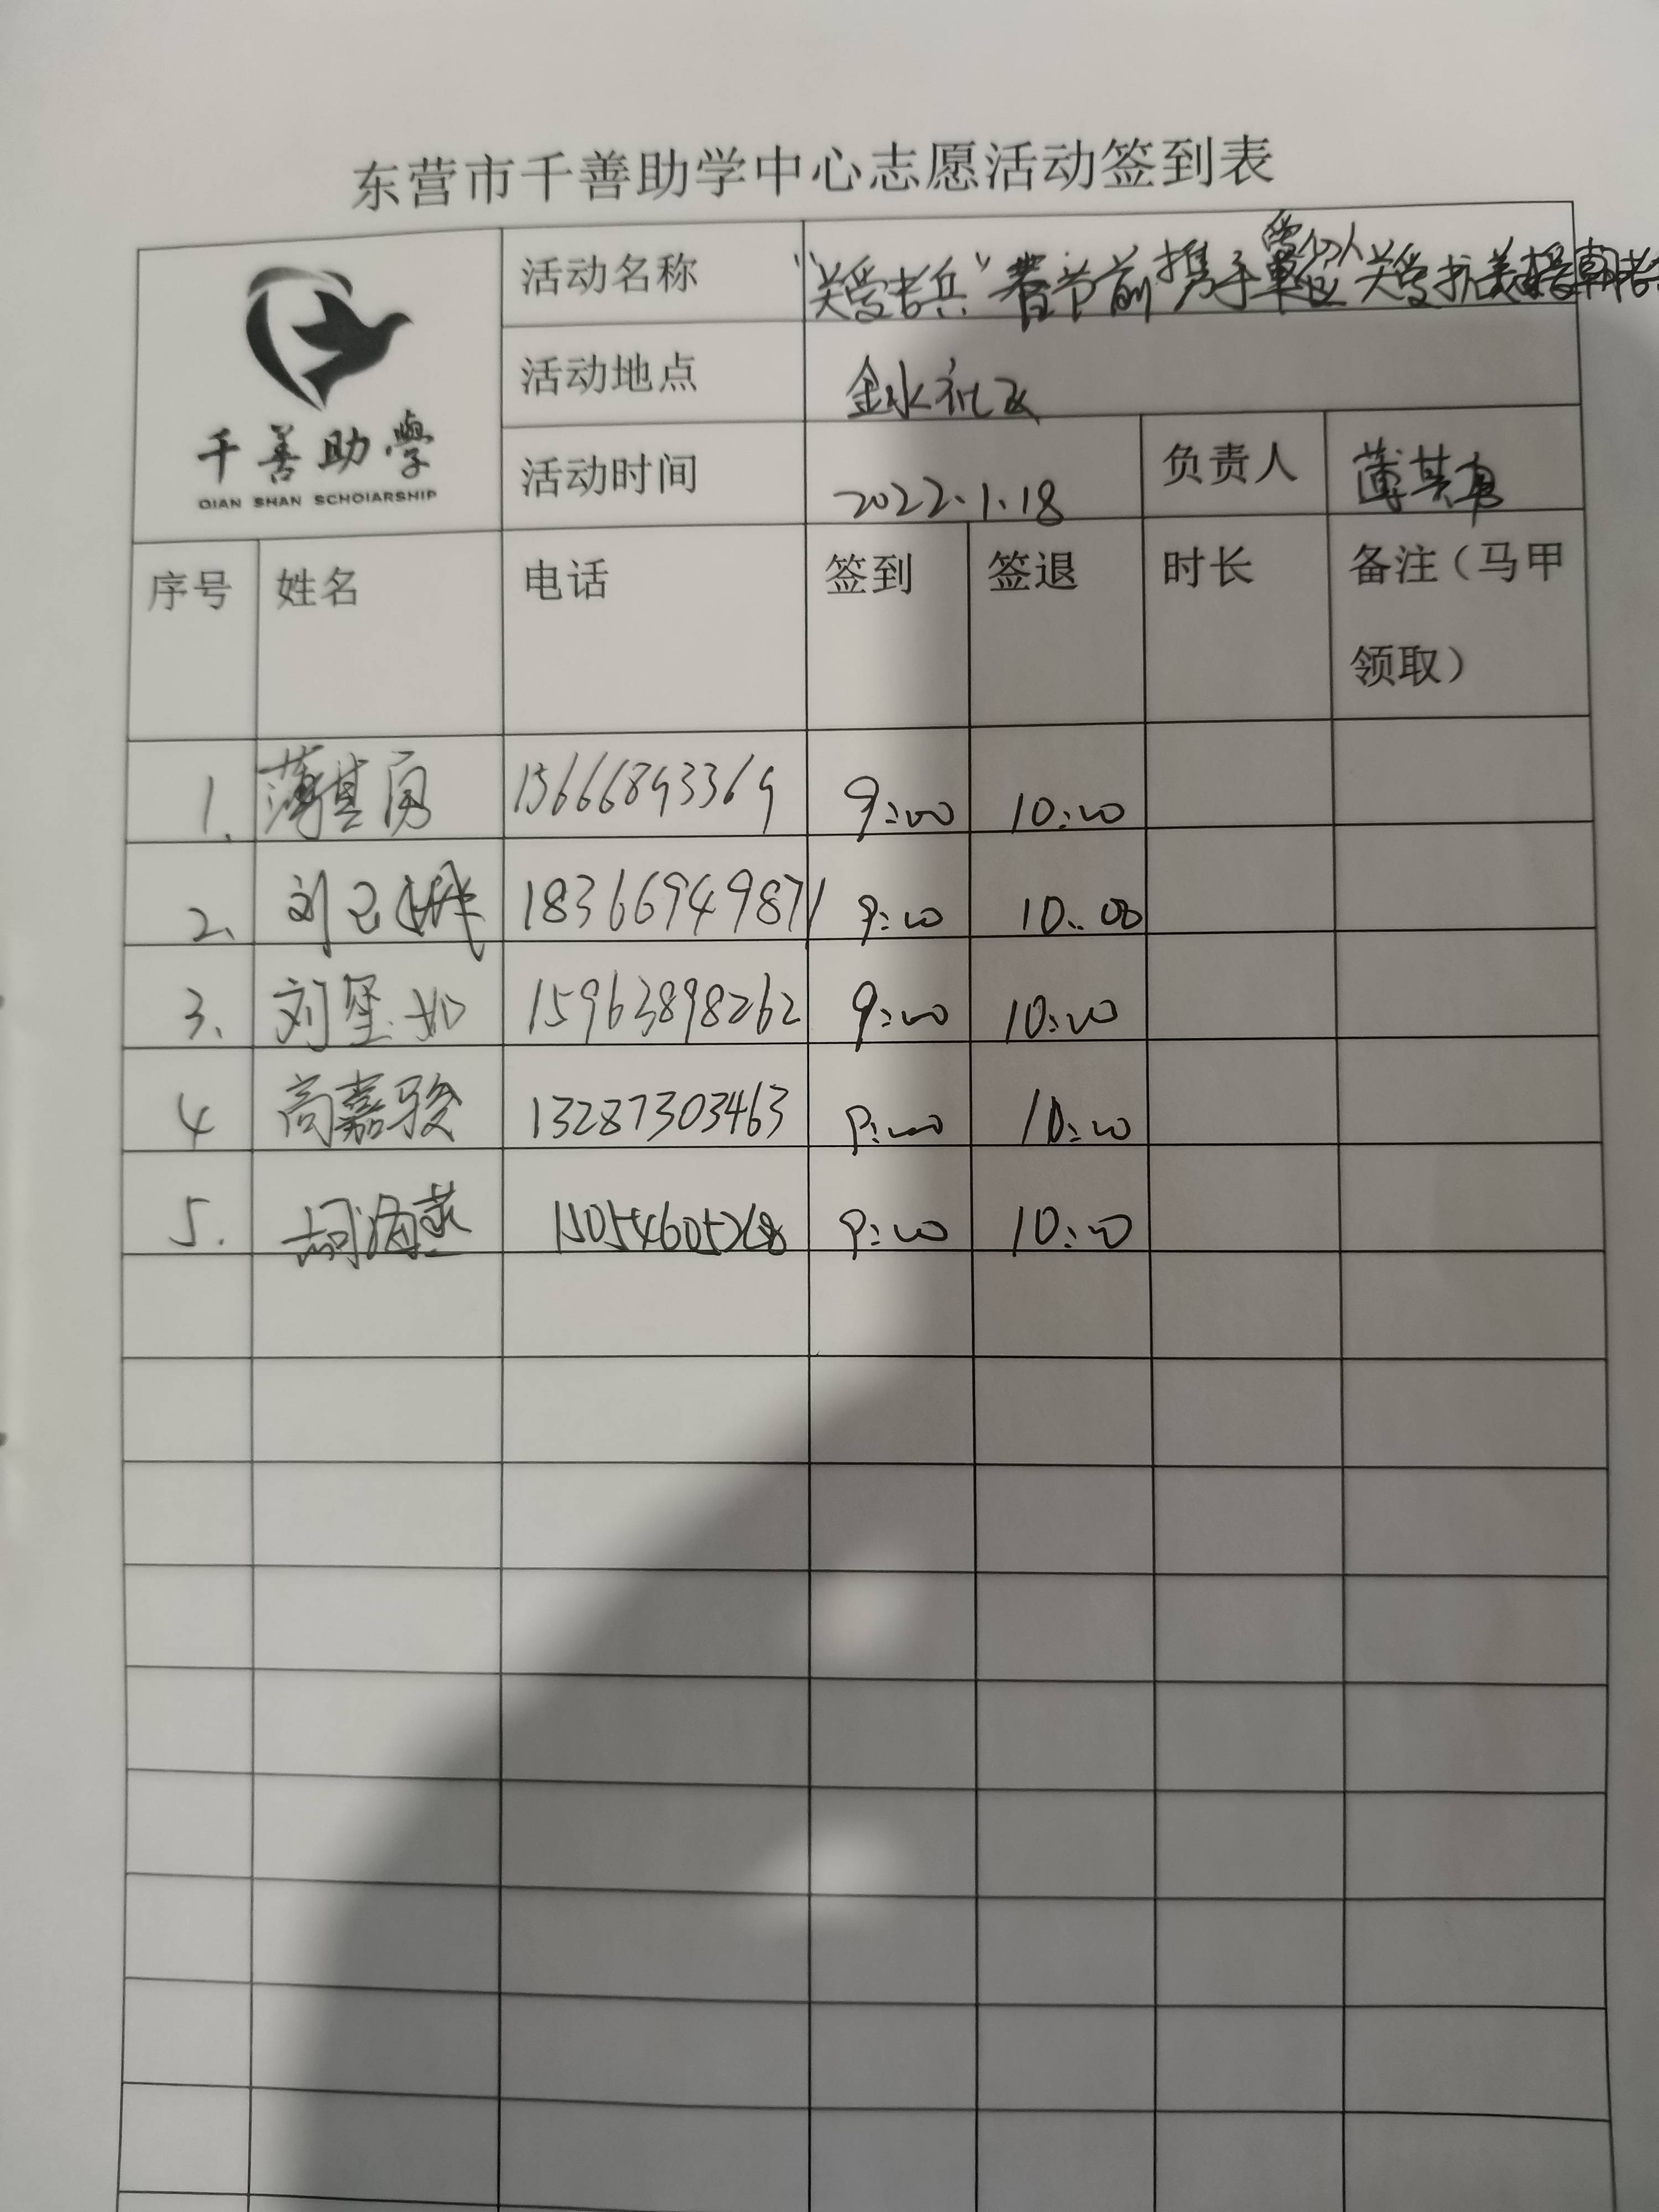 东营市千善助学中心志愿活动签到表
千善助學
QIAN SHAN SCHOIARSHIP
活动名称 "关爱老兵"春节前携手军区关爱抗美援朝老
活动地点 金水社区
活动时间 2022.1.18 负责人 薄其勇
序号 姓名 电话 签到 签退 时长 备注（马甲
领取）
1. 薄其勇 15666893369 9:00 10:00
2. 刘 18366949871 9:00 10:00
3. 刘玺如 15963898262 9:00 10:00
4 高嘉骏 13287303463 9:00 10:00
5. 胡海燕 15054605268 9:00 10:00